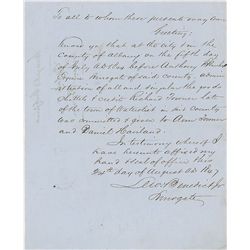 To all to whom these presents may come
Greeting:
Know ye, that at the city in the
County of Albany on the fifth day
of July AD 1842 before Anthony Blanchard
Esquire Surrogate of said county, admin
istration of all and singular the goods
chattels & credits Richard Toomer late
of the town of Watervliet in said County
was committed & given to Ann Toomer
and Daniel Harland.
In testimony whereof I
have hereunto affixed my
hand & seal of office this
day of August AD 1847
Lewis Benedict Jr
Surrogate